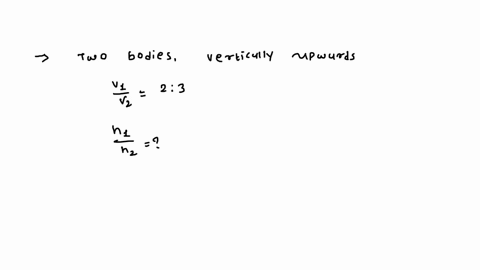 → Two bodies, vertically upwards
v1/v2 = 2:3
h1/h2 = ?